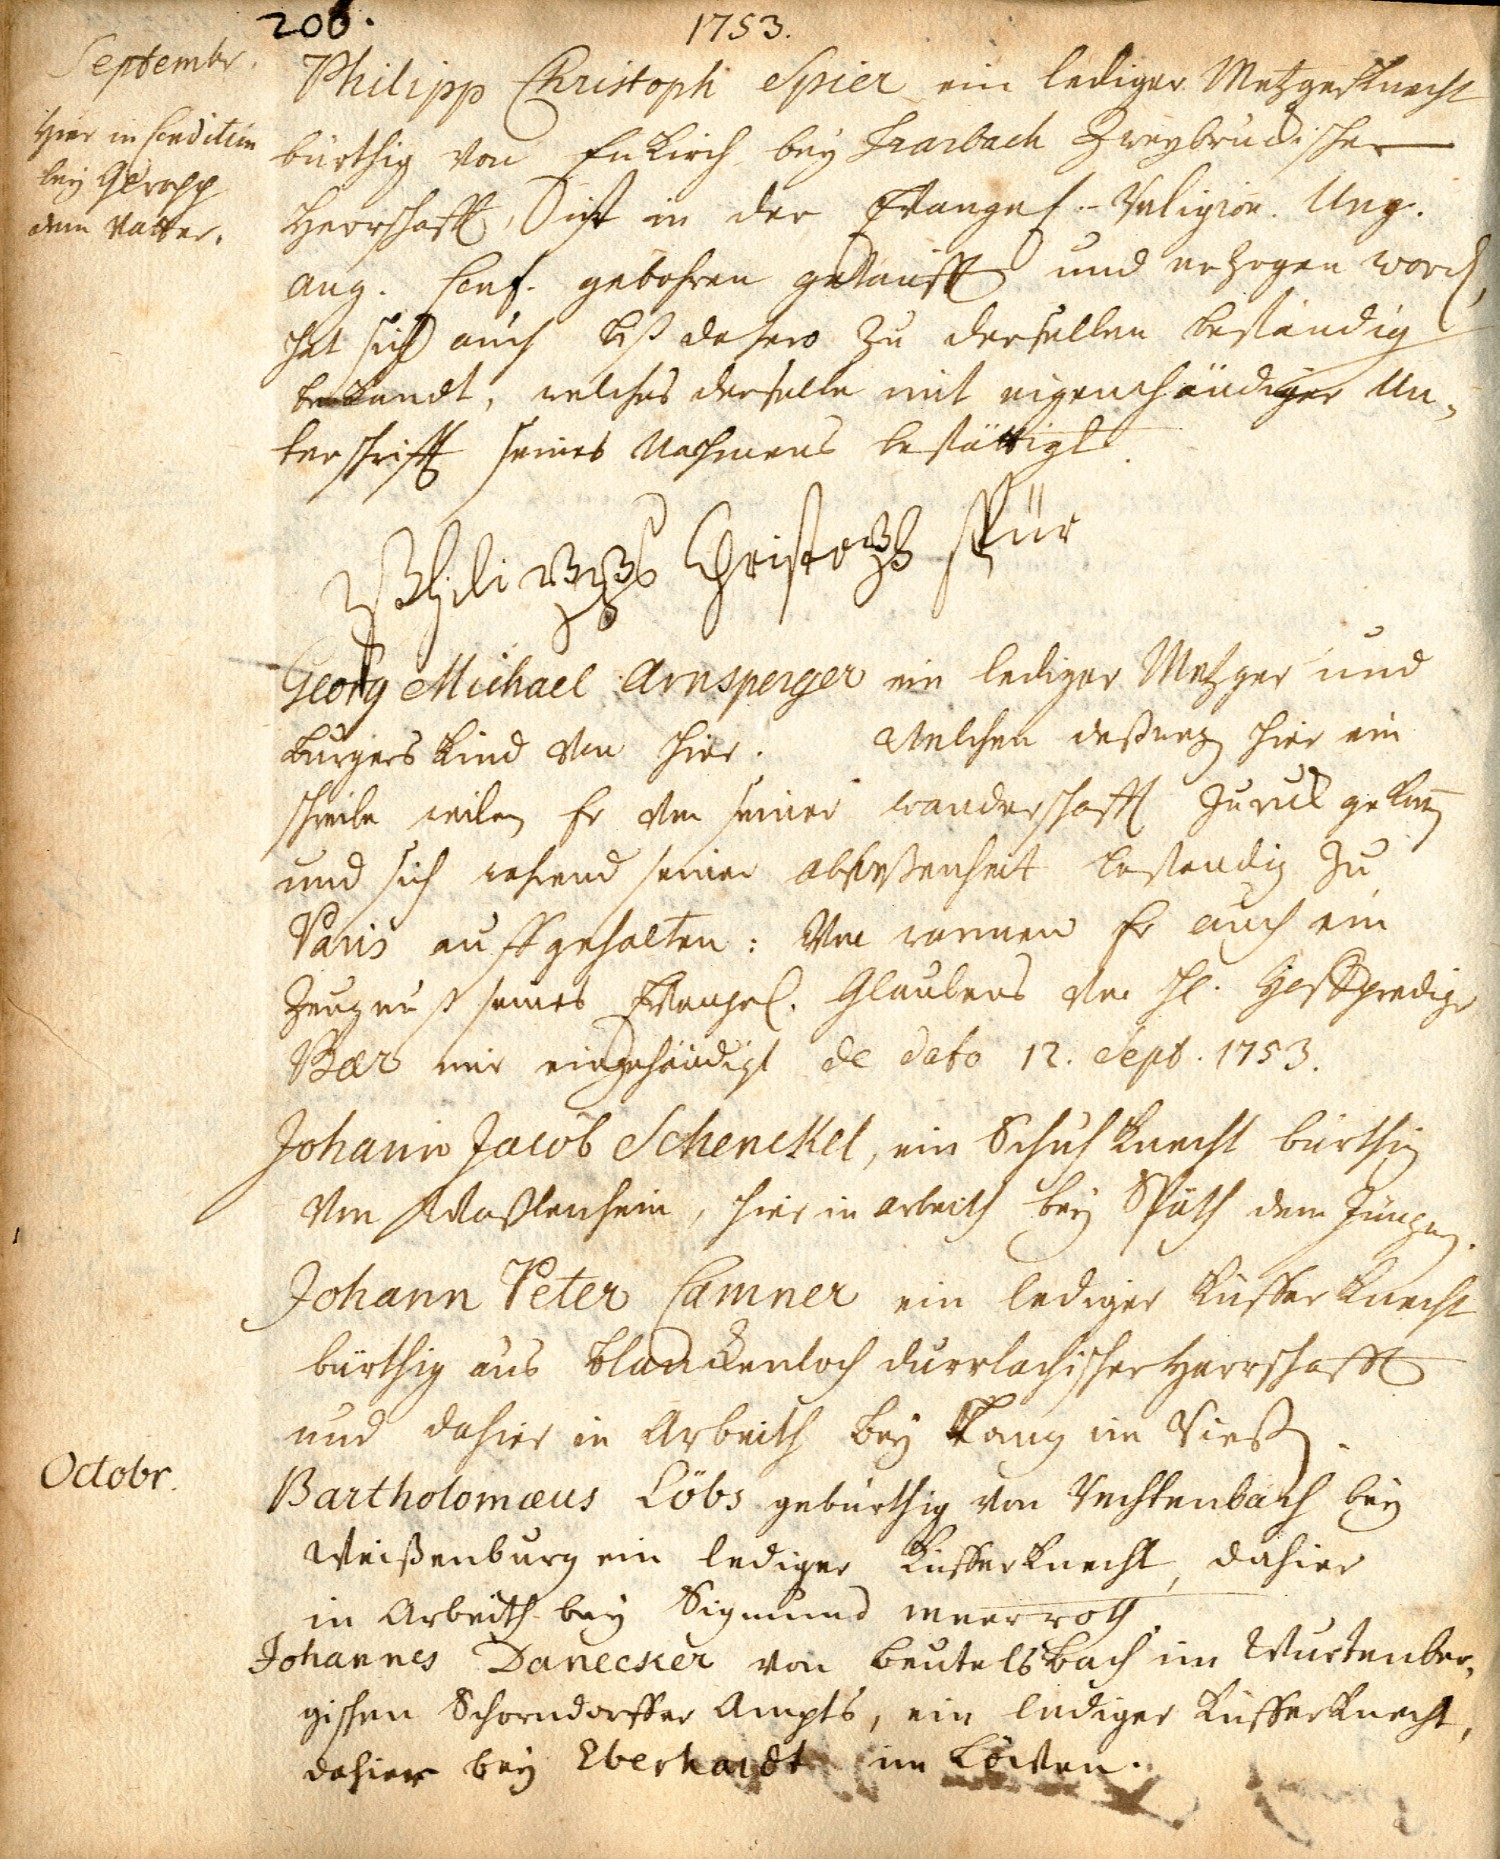 206.
1753.
Septembr.
Hier in Condition
bey Gerapp
dem Vatter.
Philipp Christoph Spier ein lediger MetzgerKnecht
bürthig von EnKirch bey Trarbach Zweybrückischer
Herrschafft, ist in der Evangel. Religion. Ung.
Aug. Conf. gebohren getaufft und erzogen word,
hat sich auch biß dahero zu derselben beständig
bekandt, welches derselbe mit eigenhändiger Un-
terschrifft seines Nahmens bestättigt.
Philipps Christoph Spür
Georg Michael Arnsperger ein lediger Metzger und
burgers Kind von hier. Welchen deßweg hier ein
schreibe weilen Er von seiner wanderschafft zuruk gekom
und sich wehrend seiner abweßenheit bestendig zu
Paris auffgehalten: Von wannen Er auch ein
Zeugnuß seines Evangel. Glaubens von H. Hoffpredigr
Bær mir eingehändigt de dato 12. Sept. 1753.
Johann Jacob Schenckel, ein SchuhKnecht bürthig
von Waßlenheim, hier in arbeith bey Späth dem Jüngen.
Johann Peter Camner ein lediger KüfferKnecht
bürthig aus Blanckenloch durrlachischer Herrschafft
und dahier in Arbeith bey Lang im Rieß.
Octobr.
Bartholomæus Löbs gebürthig von Rechtenbach bey
Weißenburg ein lediger KüfferKnecht, dahier
in Arbeith bey Sigmund Meerroth.
Johannes Danecker von Beutelsbach im Würtenber-
gischen Schorndorffer Ampts, ein lediger KüfferKnecht,
dahier bey Eberhardt im Löwen.